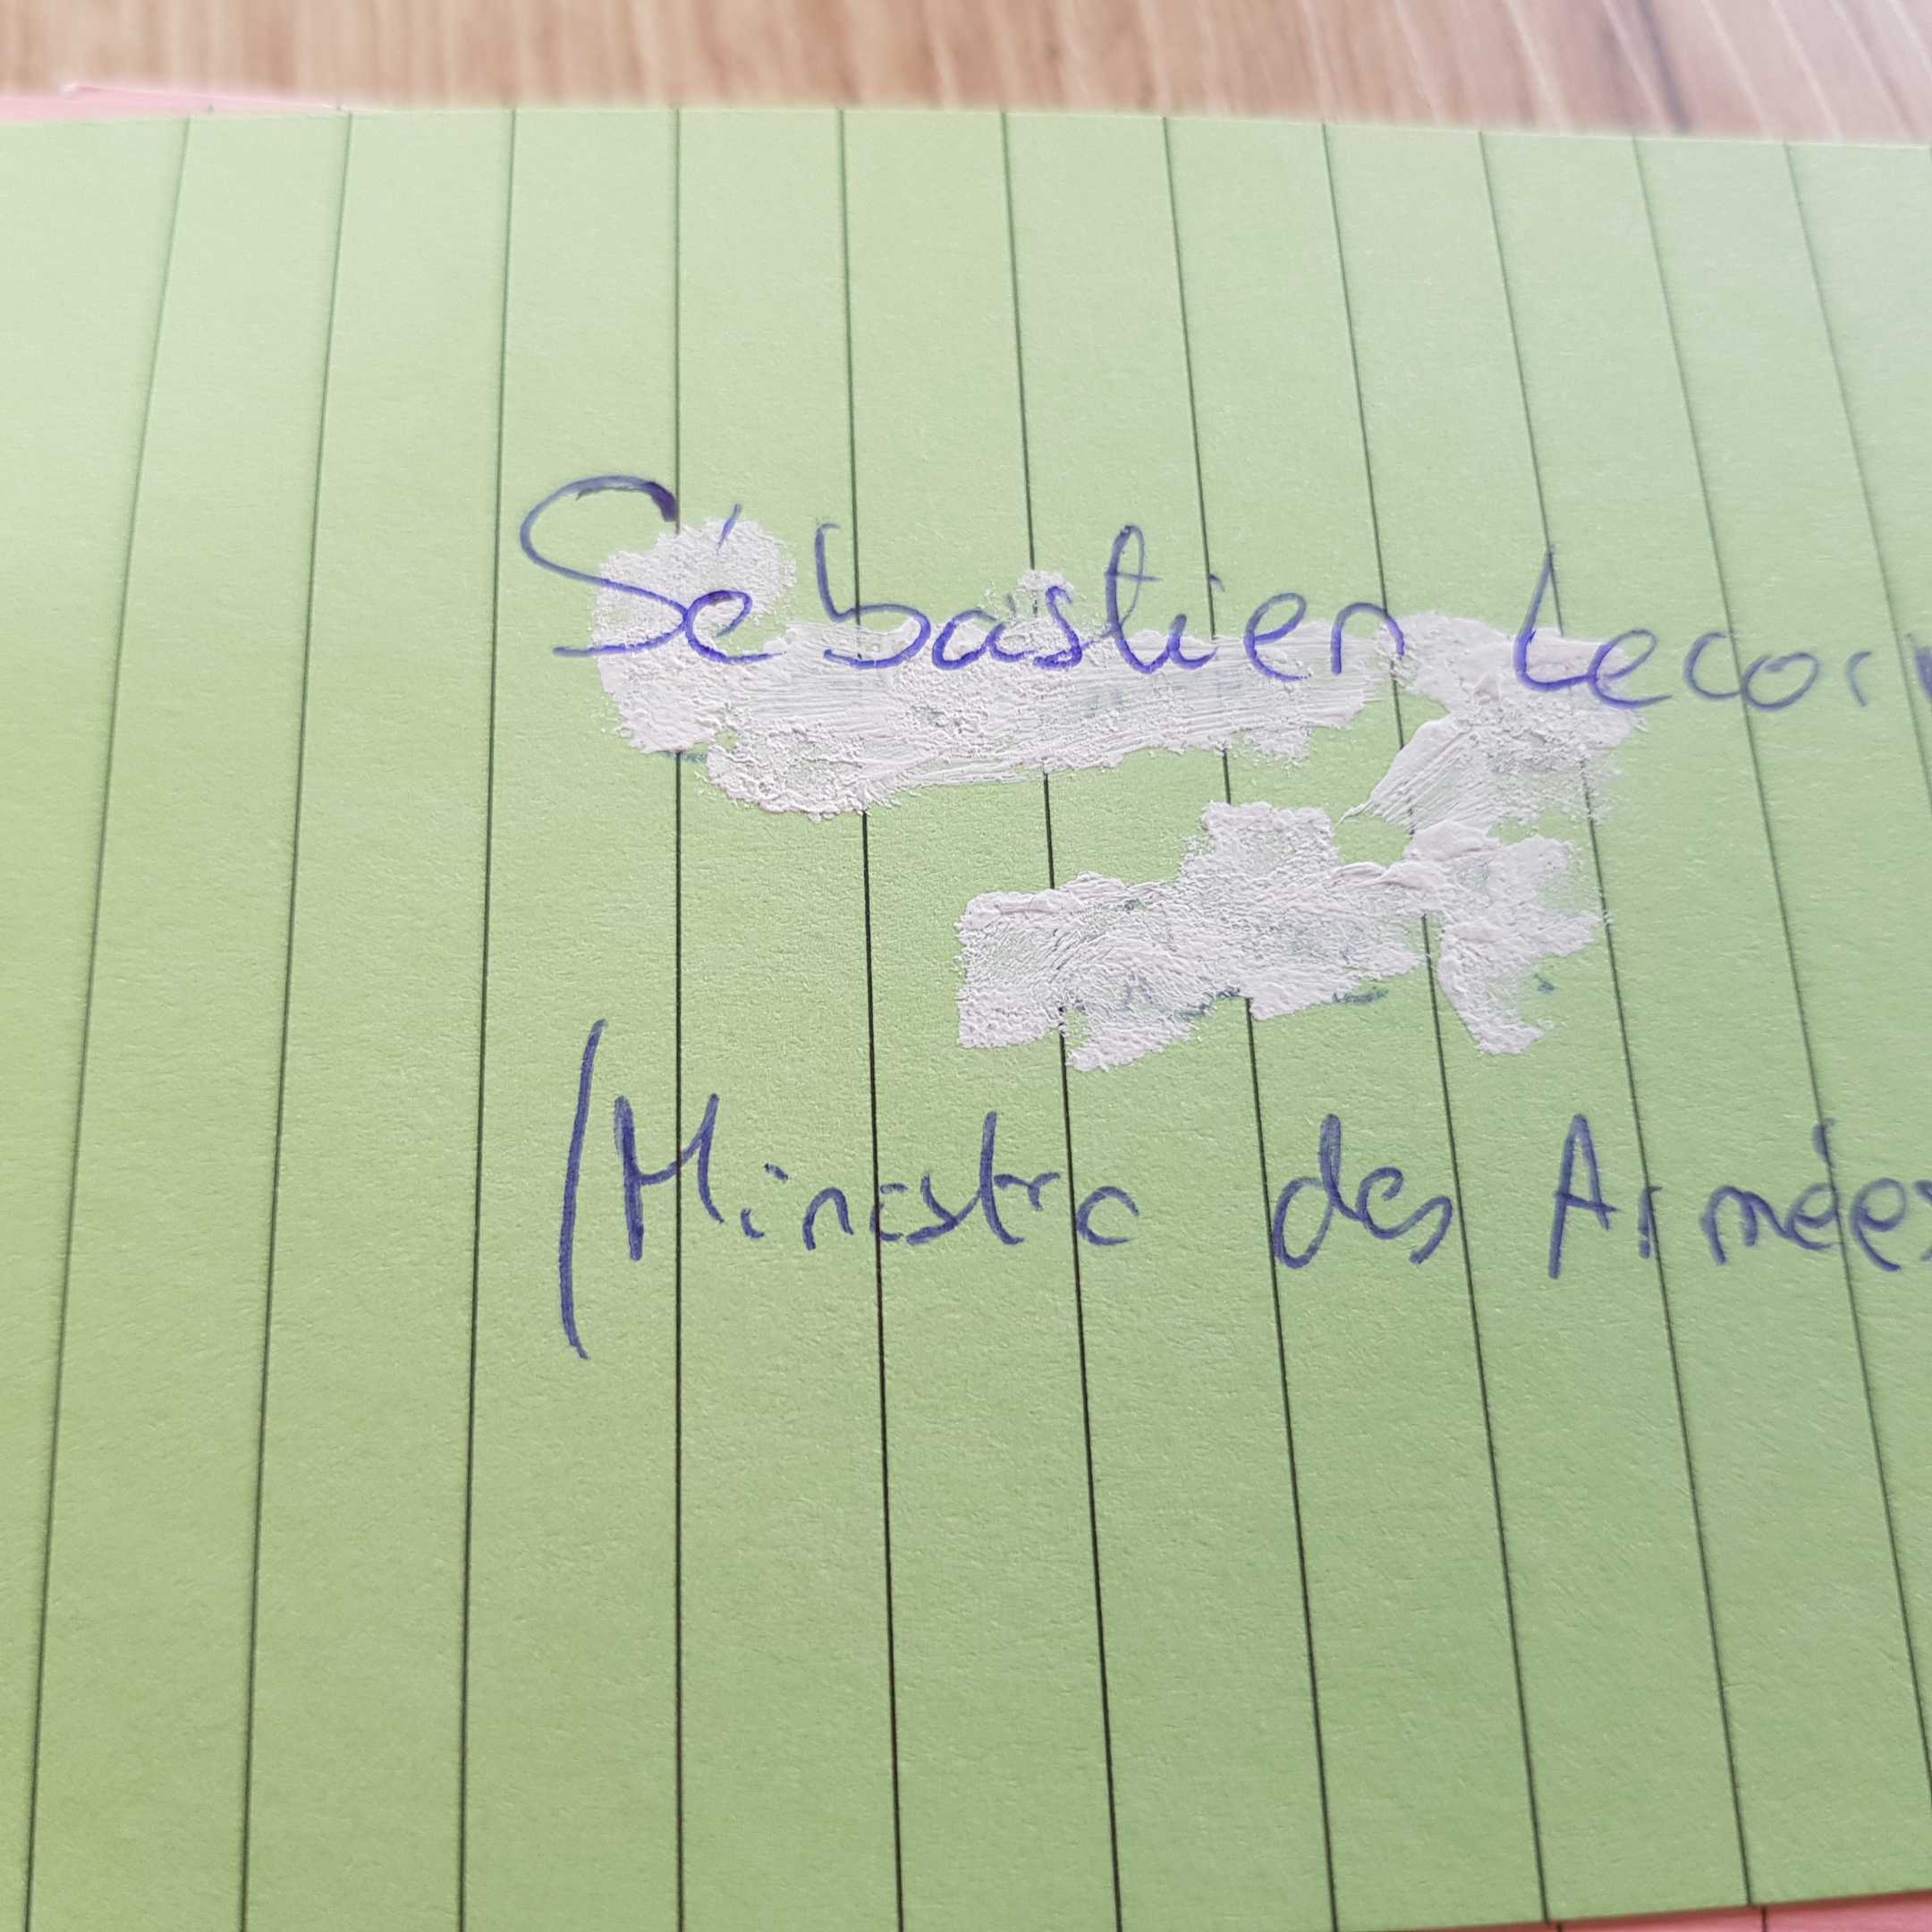 Sébastien Lecorn
(Ministre des Armées